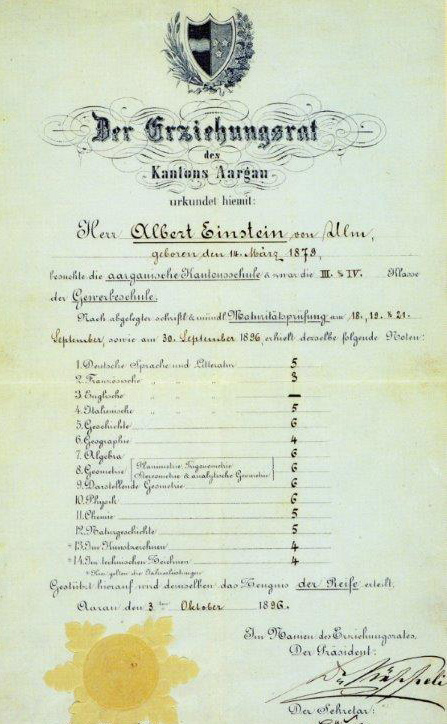 Der Erziehungsrat
des
Kantons Aargau
urkundet hiemit:
Herr Albert Einstein, von Ulm,
geboren den 14. März 1879,
besuchte die aargauische Kantonsschule & zwar die III. & IV. Klasse
der Gewerbeschule.
Nach abgelegter schriftl. & mündl. Maturitätsprüfung am 18., 19. & 21.
September, sowie am 30. September 1896 erhielt derselbe folgende Noten:
1. Deutsche Sprache und Litteratur 5
2. Französische " " " 3
3. Englische " " " —
4. Italienische " " " 5
5. Geschichte 6
6. Geographie 4
7. Algebra 6
8. Geometrie Planimetrie Trigonometrie 6
Stereometrie & analytische Geometrie
9. Darstellende Geometrie 6
10. Physik 6
11. Chemie 5
12. Naturgeschichte 5
*13. Im Kunstzeichnen 4
*14. Im technischen Zeichnen 4
*Hier gelten die Jahresleistungen
Gestützt hierauf wird demselben das Zeugnis der Reife erteilt.
Aarau den 3ten Oktober 1896.
Im Namen des Erziehungsrates,
Der Präsident:
Der Sekretär: